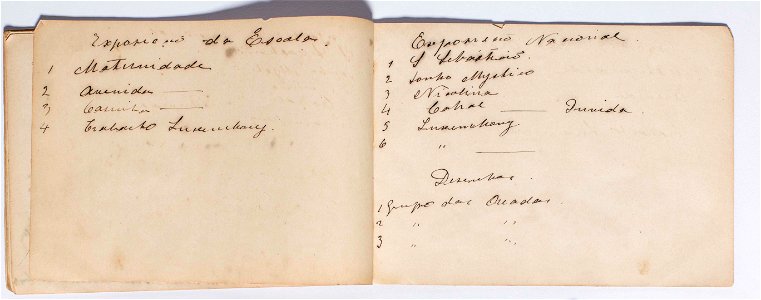 Exposição da Escola.
1 Maternidade
2 Avenida
3
4 Luxemburg.
Exposição Nacional.
1 S Sebastião.
2 Sonho Mystico
3 Nicotina
4 Cabral Duvida.
5 Luxemburg
6 "
Desenhos.
1 Grupo das Oreadas.
2 " "
3 " "